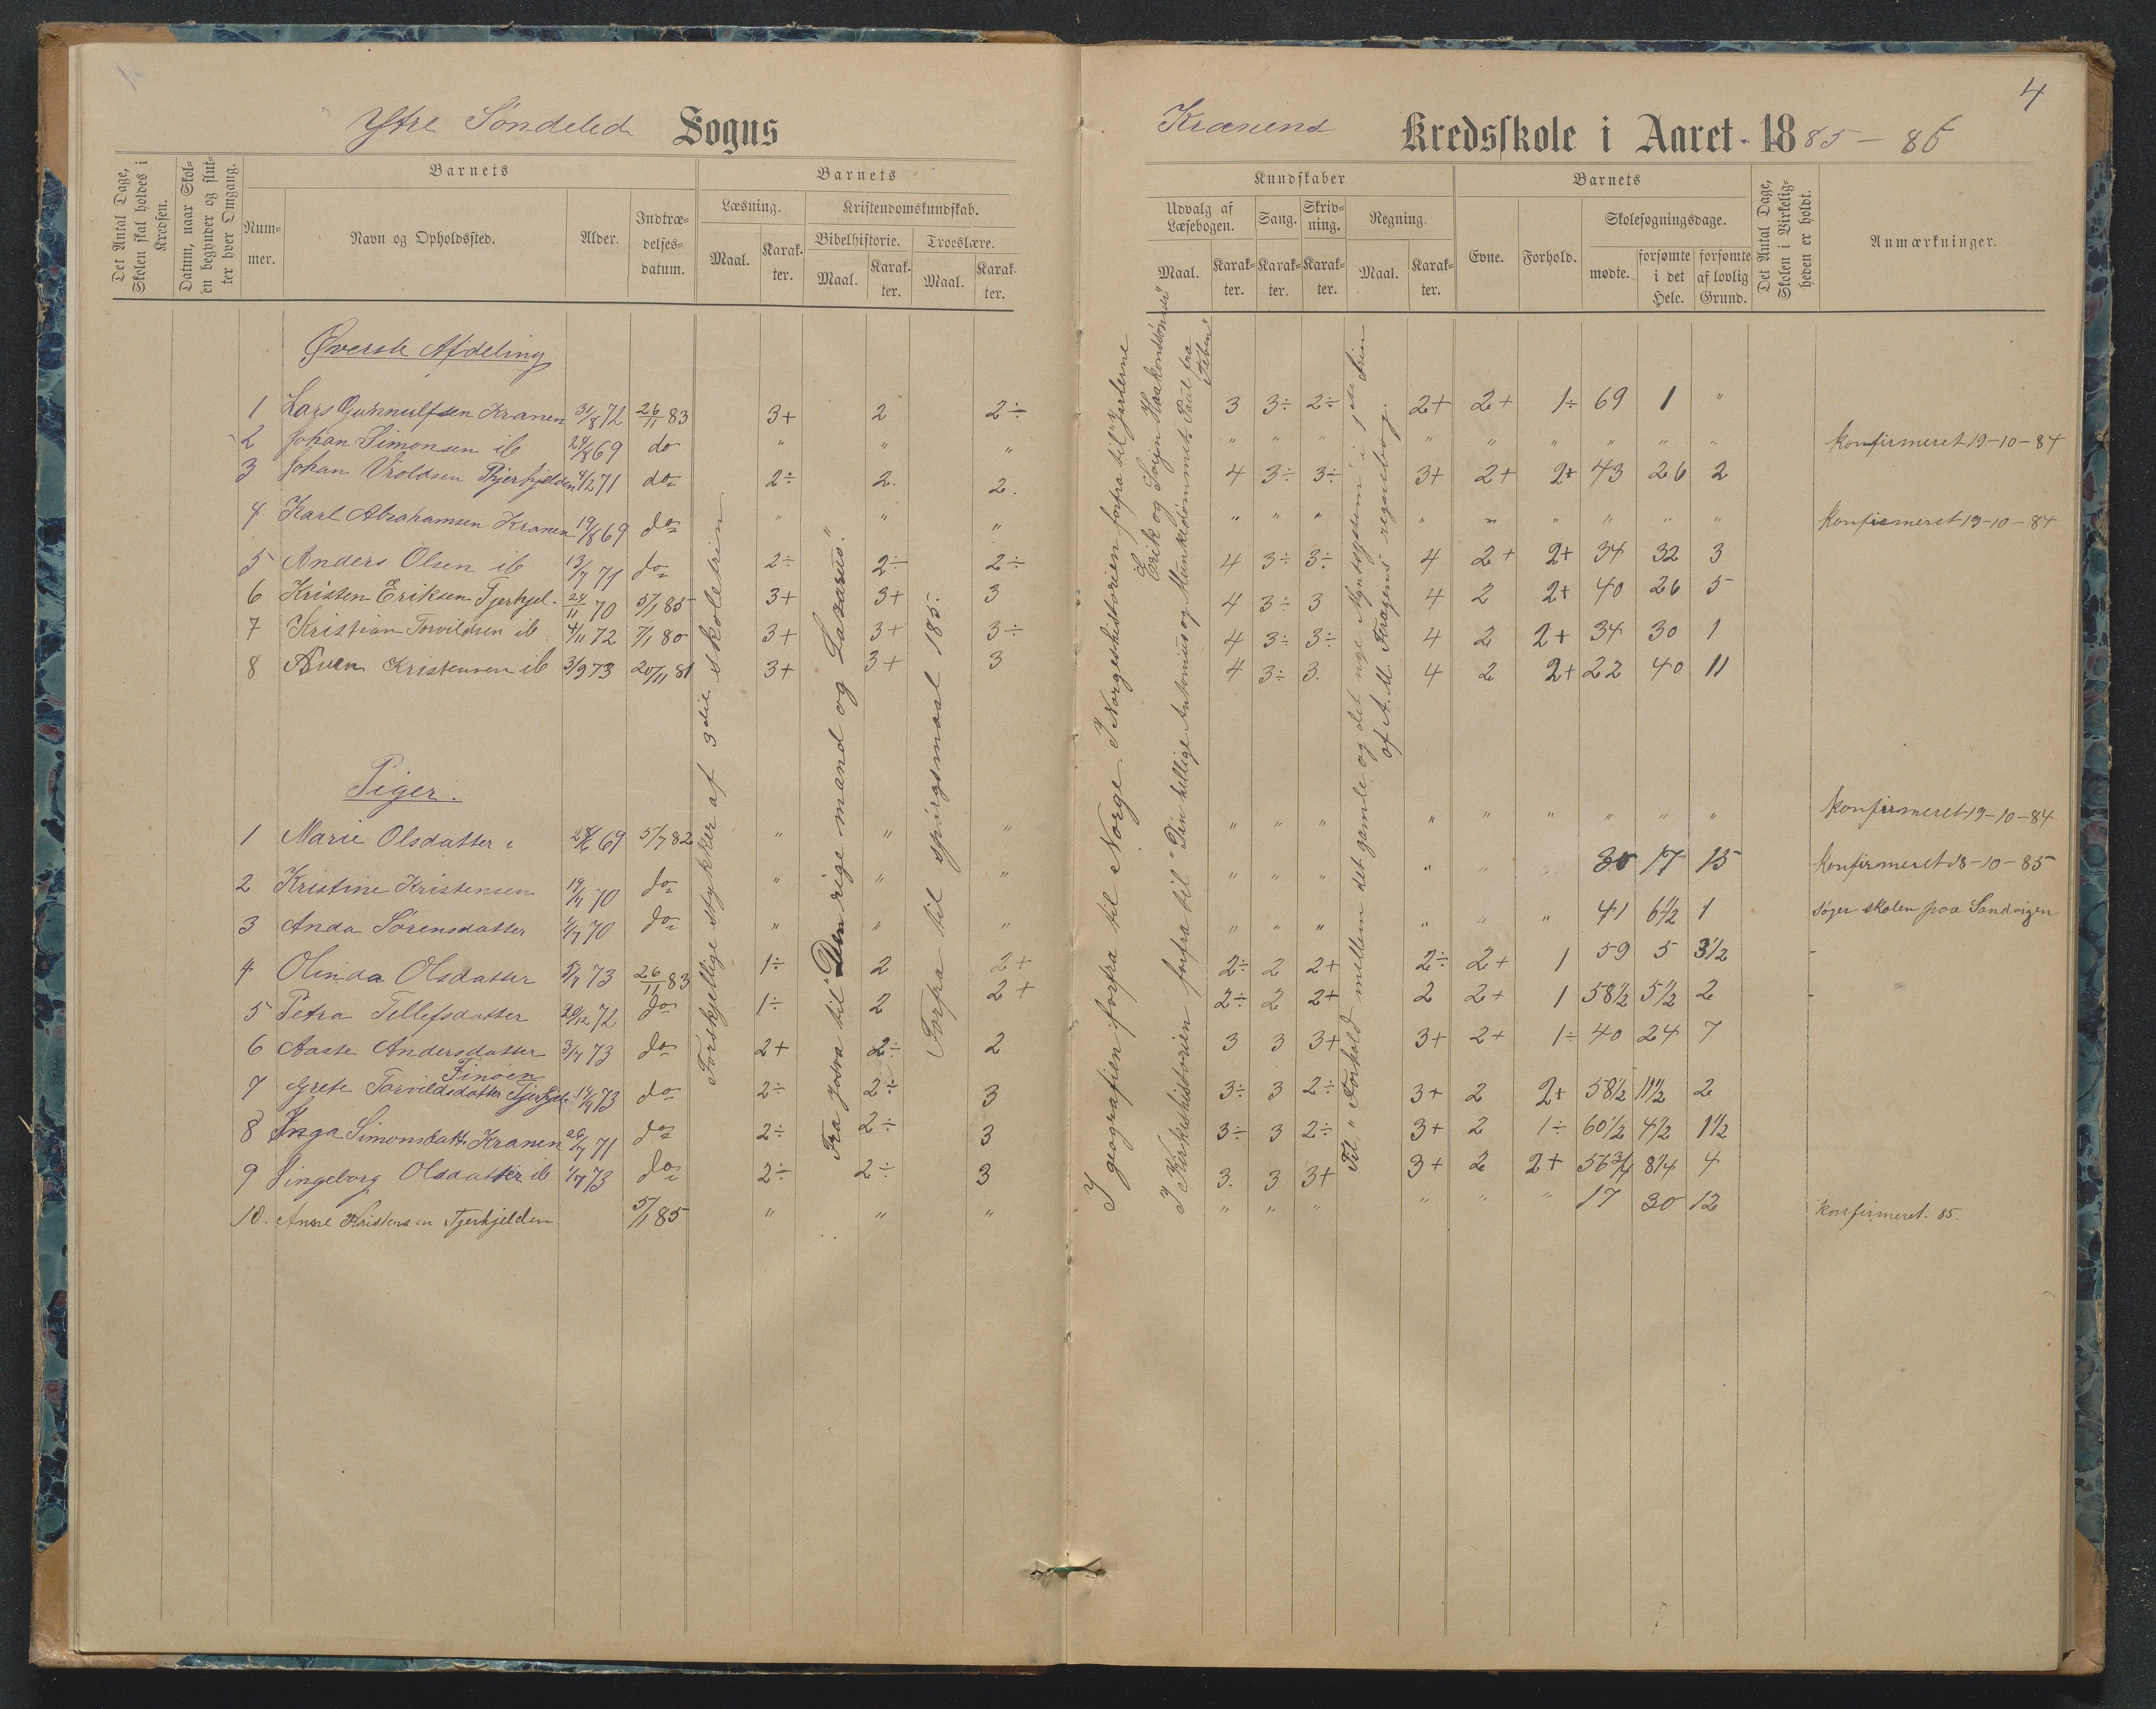 4
Ytre Søndeled Sogns
Kranens Kredsskole i Aaret 1885 – 86
Det Antal Dage, Skolen skal holdes i Kredsen.
Datum, naar Skolen begynder og slutter hver Omgang.
Barnets
Nummer.
Navn og Opholdssted.
Alder.
Indtrædelsesdatum.
Barnets
Læsning.
Maal.
Karakter.
Kristendomskundskab.
Bibelhistorie.
Maal.
Karakter.
Troeslære.
Maal.
Karakter.
Kundskaber
Udvalg af Læsebogen.
Maal.
Karakter.
Sang.
Karakter.
Skrivning.
Karakter.
Regning.
Maal.
Karakter.
Barnets
Evne.
Forhold.
Skolesøgningsdage.
mødte.
forsømte i det Hele.
forsømte af lovlig Grund.
Det Antal Dage, Skolen i Virkeligheden er holdt.
Anmærkninger.
Øverste Afdeling
1 Lars Gunnulfsen Kranen 31/8 72 26/11 83 3+ 2 2÷ 3 3÷ 2÷ 2+ 2+ 1÷ 69 1 "
2 Johan Simonsen ib 24/8 69 do " " " " " " " " " " " " konfirmeret 19-10-84
3 Johan Vroldsen Tjerkjelden 4/12 71 do 2÷ 2. 2. 4 3÷ 3÷ 3+ 2+ 2+ 43 26 2
4 Karl Abrahamsen Kranen 19/8 69 do " " " " " " " " " " " " Konfirmeret 19-10-84
5 Anders Olsen ib 13/7 71 do 2÷ 2÷ 2÷ 4 3÷ 3÷ 4 2+ 2+ 34 32 3
6 Kristen Eriksen Tjerkjel. 24/11 70 5/1 85 3+ 3+ 3 4 3÷ 3 4 2 2+ 40 26 5
7 Kristian Torvildsen ib 4/11 72 7/1 80 3+ 3+ 3÷ 4 3÷ 3÷ 4 2 2+ 34 30 1
8 Even Kristensen ib 3/9 73 20/11 81 3+ 3+ 3 4 3÷ 3. 4 2 2+ 22 40 11
Piger.
1 Marie Olsdatter 28/6 69 5/7 82 " " " " " " " " " " " " konfirmeret 19-10-84
2 Kristine Kristensen 19/4 70 do " " " " " " " " 30 17 15 konfirmeret 18-10-85
3 Anda Sørensdatter 1/7 70 do " " " " " " " " " 41 6 1/2 1 søger skolen paa Sandvigen
4 Olinda Olsdatter 5/7 73 26/11 83 1÷ 2 2+ 2÷ 2 2+ 2÷ 2+ 1 59 5 3 1/2 -
5 Petra Tellefsdatter 20/12 72 do 1÷ 2 2+ 2÷ 2 2+ 2 2+ 1 58 1/2 5 1/2 2 -
6 Aaste Andersdatter 3/7 73 do 2+ 2÷ 2 3 3 3+ 3+ 2+ 1÷ 40 24 7
Finøen
7 Grete Torvildsdatter Tjerkjel. 14/9 73 do 2÷ 2÷ 3 3÷ 3 2÷ 3+ 2 2+ 58 1/2 11 1/2 2
8 Inga Simonsdatt. Kranen 26/7 71 do 2÷ 2÷ 3 3÷ 3 2÷ 3+ 2 1÷ 60 1/2 4 1/2 1 1/2
9 Ingeborg Olsdatter ib 1/7 73 do 2÷ 2÷ 3 3. 3 3+ 3+ 2 2+ 56 3/4 8 1/4 4
10. Anne Kristensen Tjerkjelden 5/1 85 " " " " " " " " " 17 30 12 Konfirmeret. 85.
Forskjellige stykker af 3die skoletrin.
Fra Josva til "Den rige mand og Lasarus".
Forfra til spørgsmaal 185.
I geografien forfra til Norge. I Norgeshistorien forfra til "Jarlerne Erik og Svejn Haakonsønner"
I Kirkehistorien forfra til "Den hellige Antonius og Munkedømmet. Paul fra Teben"
Til "Forhold mellem det gamle og det nye Myntsystem" i 1ste Trin af A. M. Feragens regnebog.